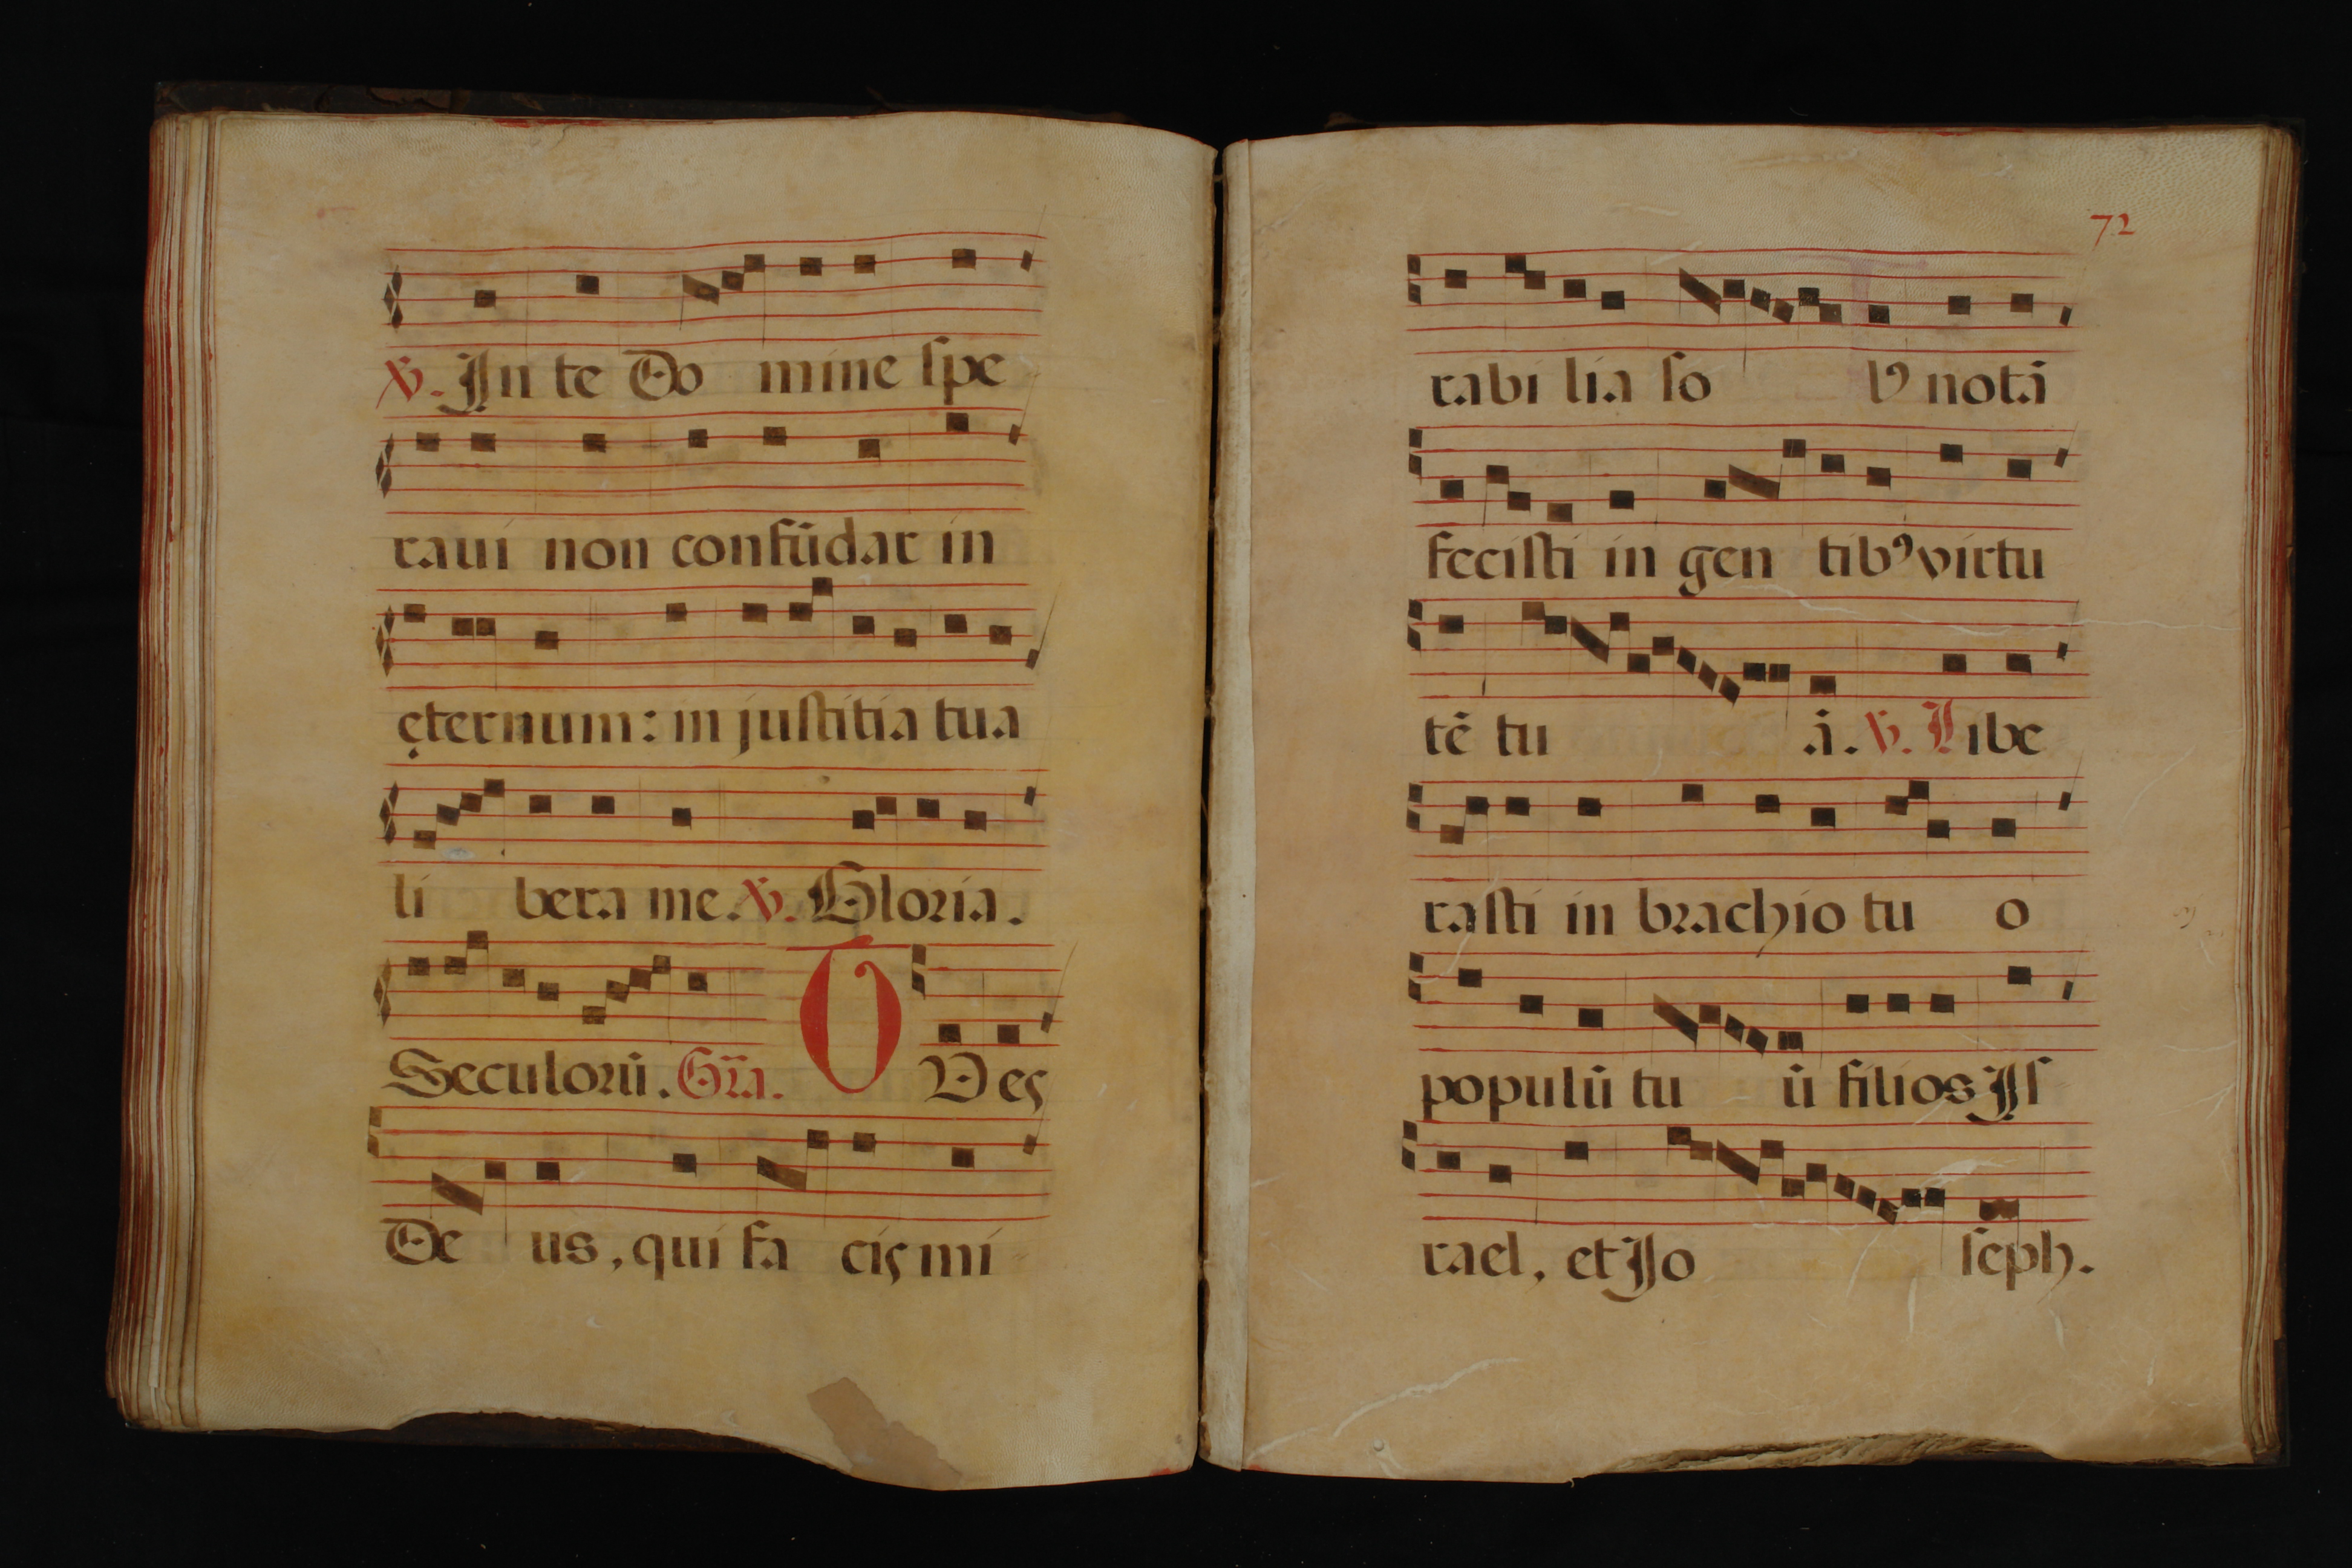 ℣. In te Do mine ſpe
raui non confūdar in
ęternum: in juſtitia tua
li bera me. ℣. Gloria.
Seculorū. Gr̄a. TV Es
De us, qui fa cis mi
72
rabi lia ſo lꝰ notā
feciſti in gen tibꝰ virtu
tē tu ā. ℣. Libe
raſti in brachio tu o
populū tu ū filios Iſ
rael, et Jo ſeph.